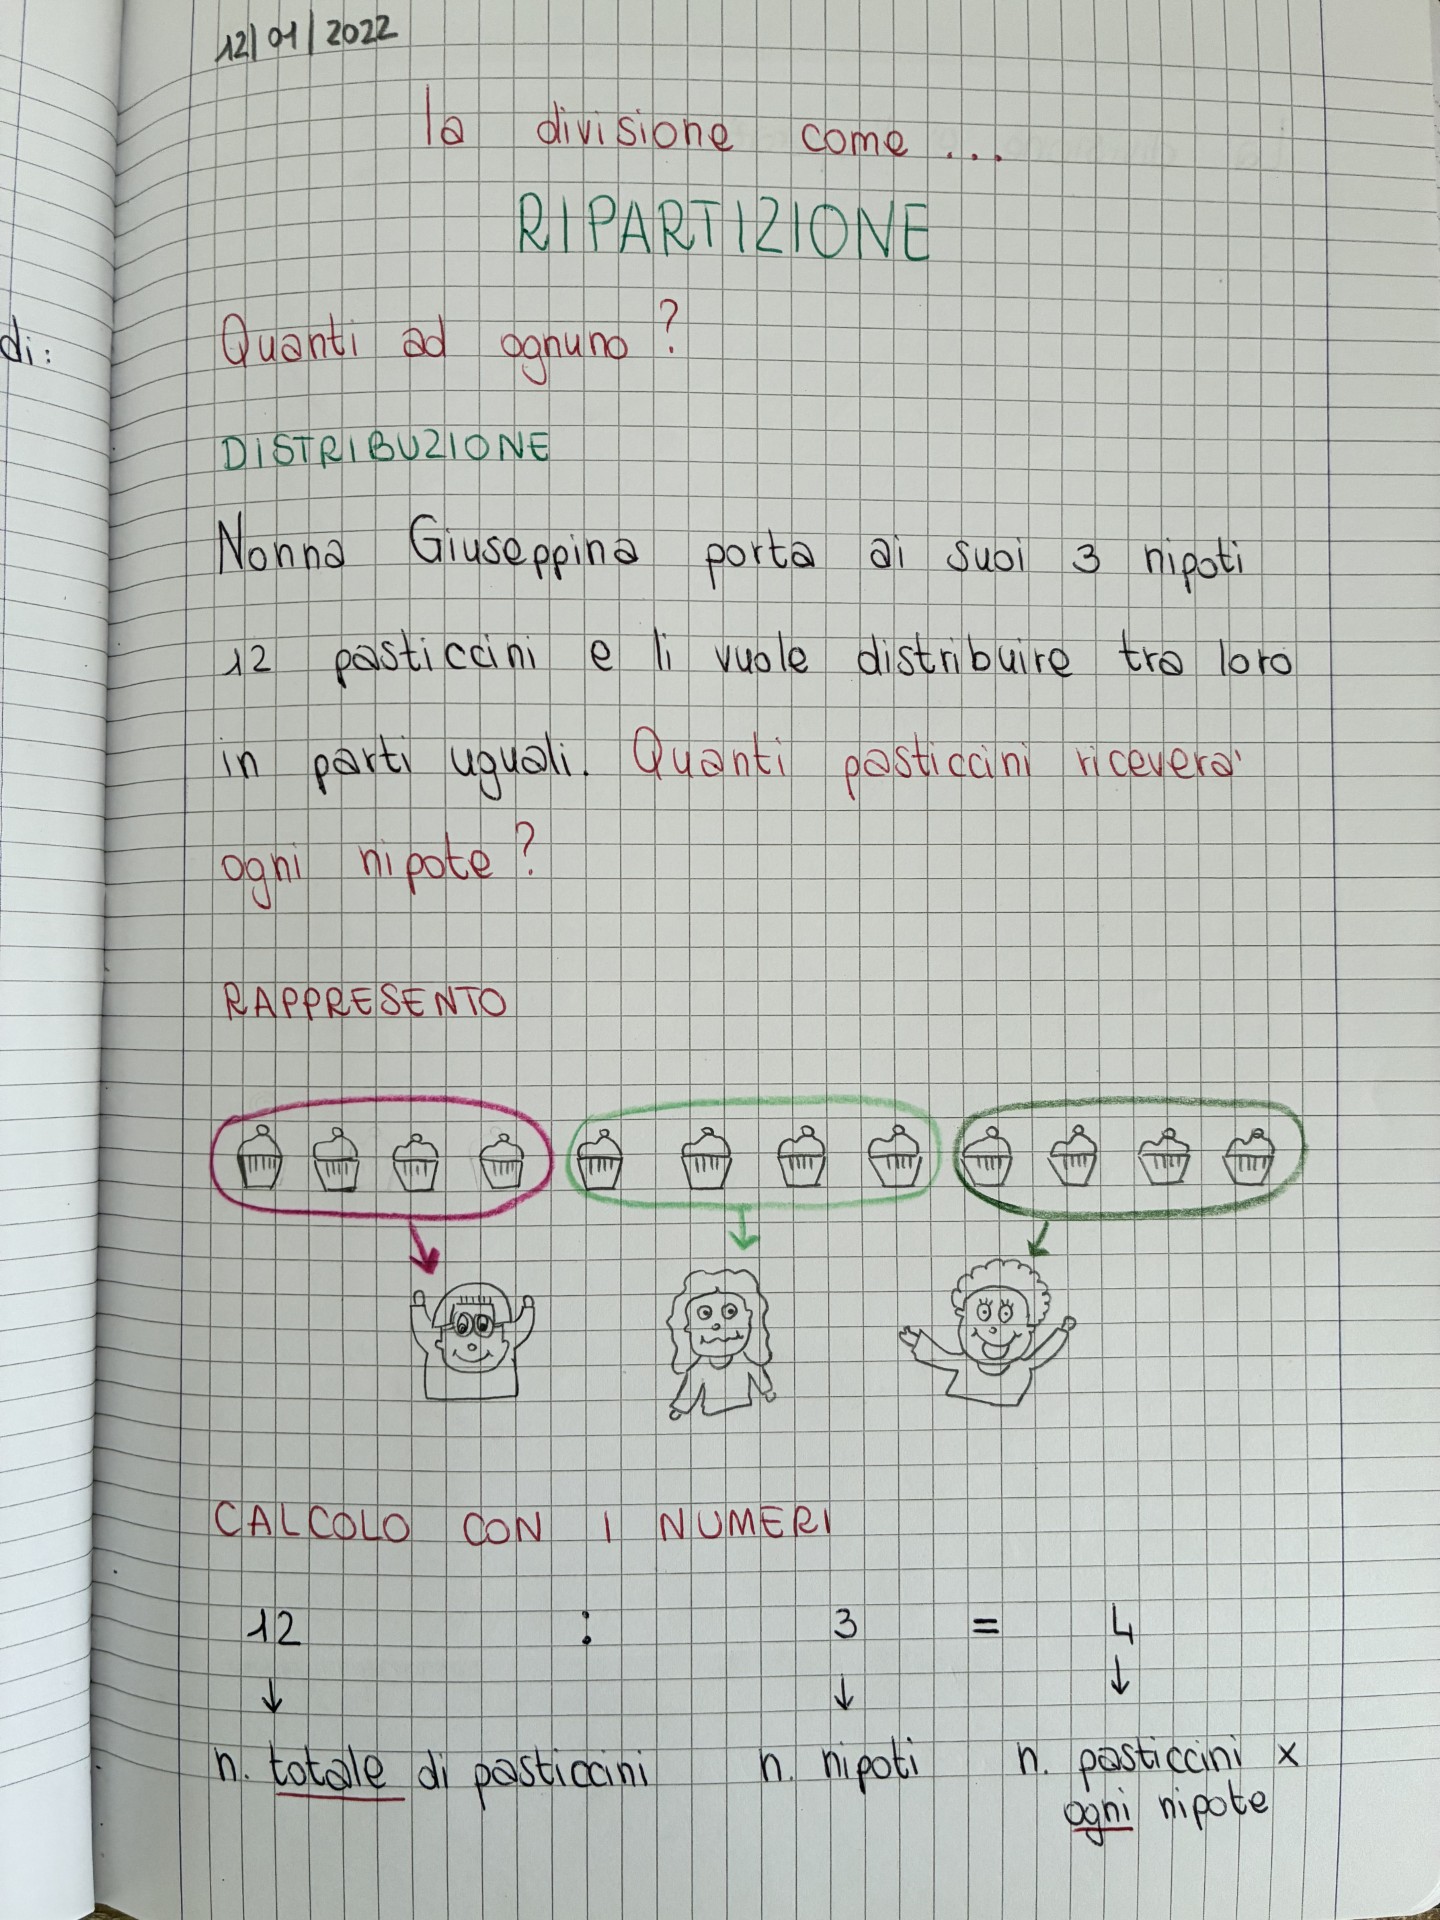 12/01/2022
la divisione come ...
RIPARTIZIONE
di:
Quanti ad ognuno?
DISTRIBUZIONE
Nonna Giuseppina porta ai suoi 3 nipoti
12 pasticcini e li vuole distribuire tra loro
in parti uguali. Quanti pasticcini riceverà
ogni nipote?
RAPPRESENTO
CALCOLO CON I NUMERI
12 : 3 = 4
↓ ↓ ↓
n. totale di pasticcini n. nipoti n. pasticcini x
ogni nipote